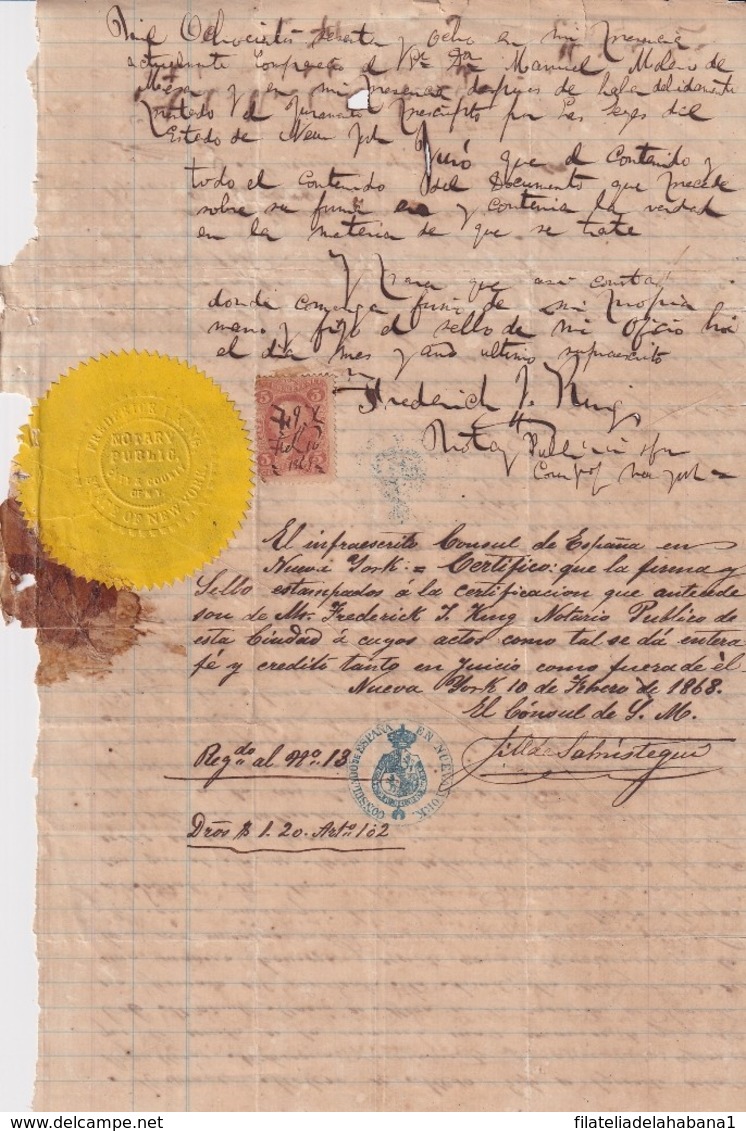 Mil Ochocientos sesenta y ocho en mi presencia
actualmente Comparecio el Dn Manuel Moleno de
Mesa y en mi presencia despues de haber debidamente
prestado el Juramento prescripto por las leyes del
Estado de New York
Juró que el Contenido y
todo el Contenido del Documento que precede
sobre su firma era y contenia la verdad
en la materia de que se trate
Y para que asi conste
donde convenga firmé de mi propia
mano y fijo el sello de mi oficio hoi
el dia mes y año ultimo supraescrito
Frederick J. King
Notary Public
New York
FREDERICK J. KING
NOTARY
PUBLIC
CITY & COUNTY
OF N.Y.
STATE OF NEW YORK
5 5
Feb 10
1868
El infraescrito Consul de España en
Nueva York: = Certifico: que la firma y
Sello estampados á la certificacion que antecede
son de Mr. Frederick J. King Notario Publico de
esta Ciudad á cuyos actos como tal se dá entera
fé y credito tanto en Juicio como fuera de él.
Nueva York 10 de Febrero de 1868.
El Cónsul de S. M.
Regdo al No. 13
CONSULADO DE ESPAÑA EN NUEVA YORK.
Dros $ 1.20. Arto 102
filateliadelahabana1